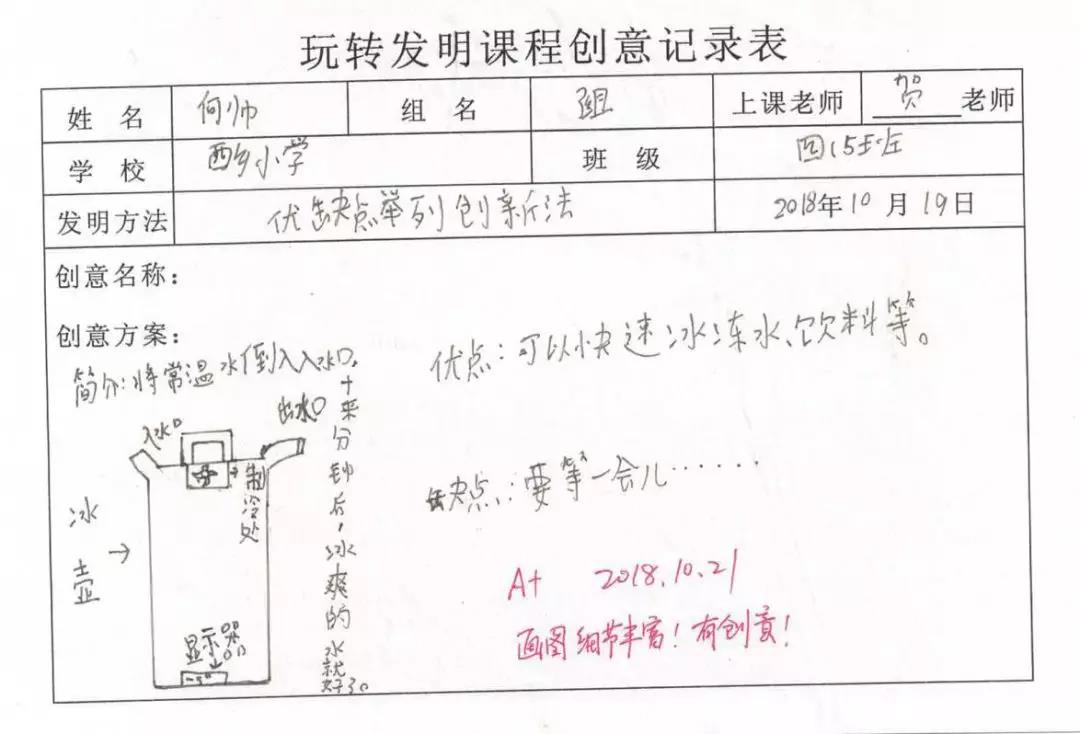 玩转发明课程创意记录表
姓名 何帅 组名 组 上课老师 贺老师
学校 西乡小学 班级 四(5)班
发明方法 优缺点举列创新法 2018年10月19日
创意名称：
创意方案：
简介:将常温水倒入入水口,十来分钟后,冰爽的水就好了。
入水口
出水口
制冷处
冰壶→
显示器
-5°
优点:可以快速冰冻水、饮料等。
缺点:要等一会儿……
A+ 2018.10.21
画图细节丰富!有创意!